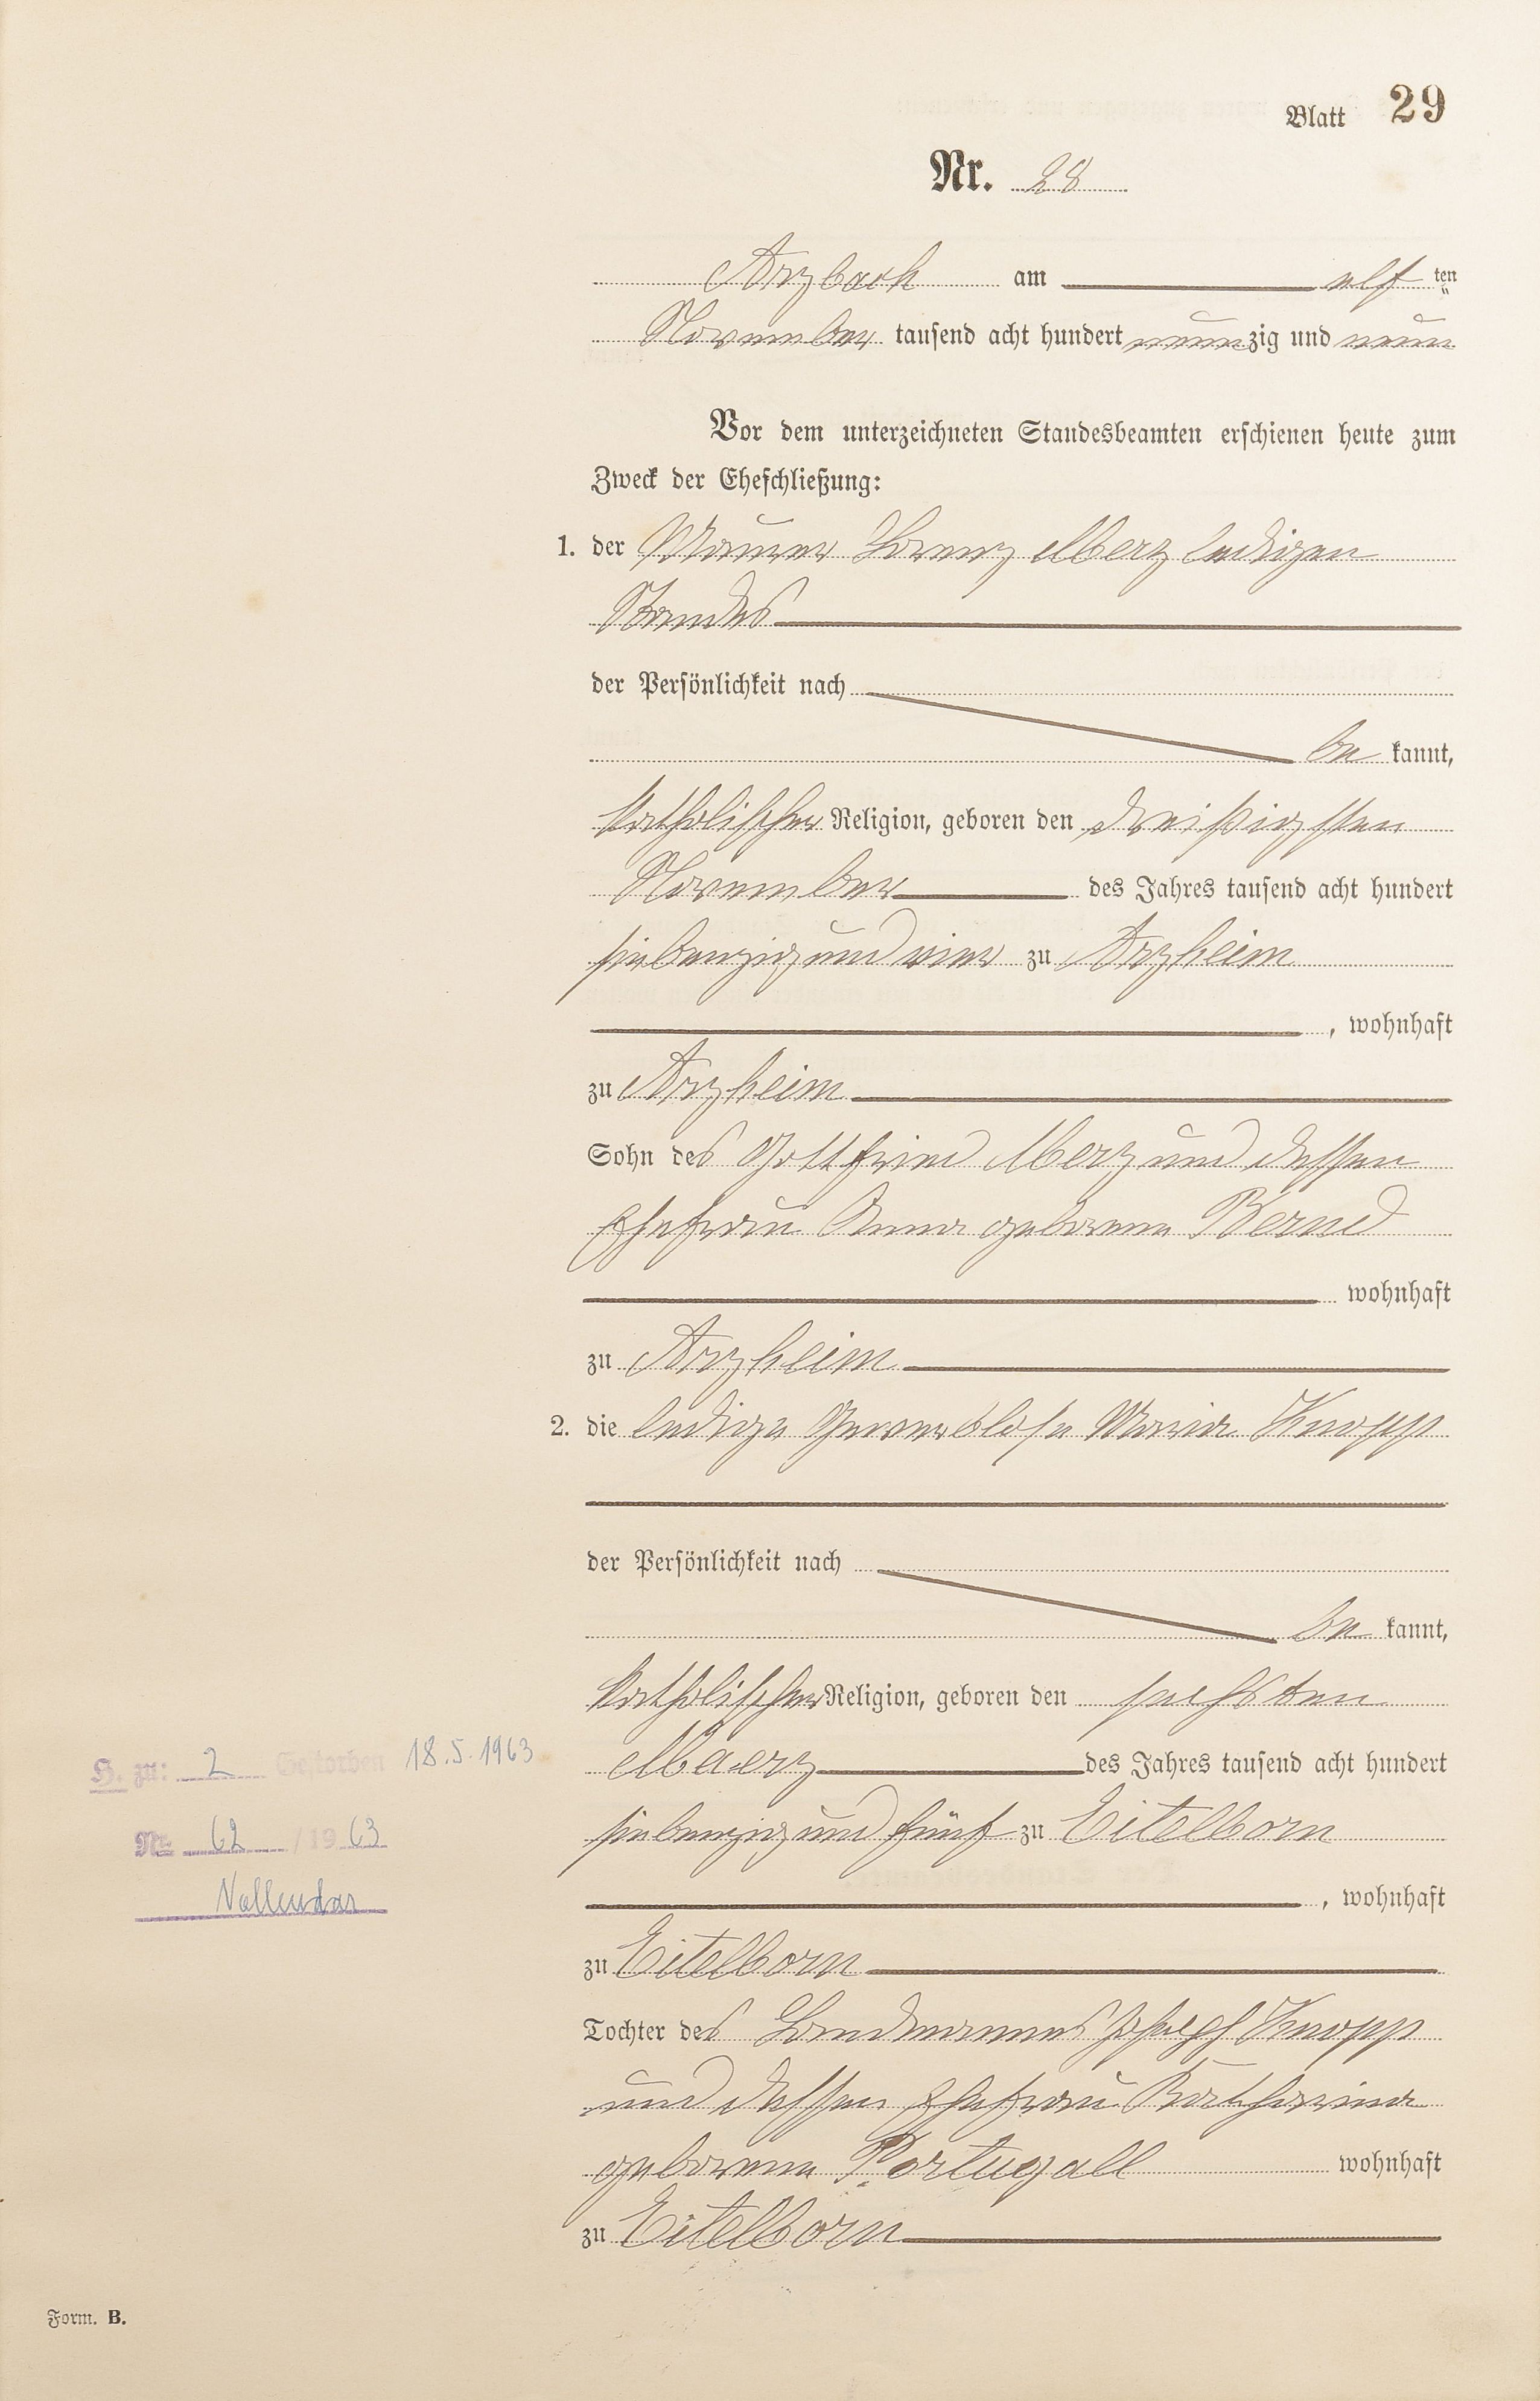 Blatt 29
Nr. 28
Arzbach am elf ten
November tausend acht hundert neunzig und neun
Vor dem unterzeichneten Standesbeamten erschienen heute zum
Zweck der Eheschließung:
1. der Maurer Lorenz Merz ledigen
Standes
der Persönlichkeit nach
be kannt,
katholischer Religion, geboren den dreißigsten
November des Jahres tausend acht hundert
siebenzig und vier zu Arzheim
, wohnhaft
zu Arzheim
Sohn des Gottfried Merz und dessen
Ehefrau Anna geborene Bernd
wohnhaft
zu Arzheim
2. die ledige Gewerblose Maria Knopp
der Persönlichkeit nach
be kannt,
katholischer Religion, geboren den sechsten
Maerz des Jahres tausend acht hundert
siebenzig und fünf zu Eitelborn
, wohnhaft
zu Eitelborn
Tochter des Landmannes Joseph Knopp
und dessen Ehefrau Katharina
geborene Portugall wohnhaft
zu Eitelborn
H. zu: 2 Gestorben 18.5.1963
Nr. 62 / 1963
Vallendar
Form. B.